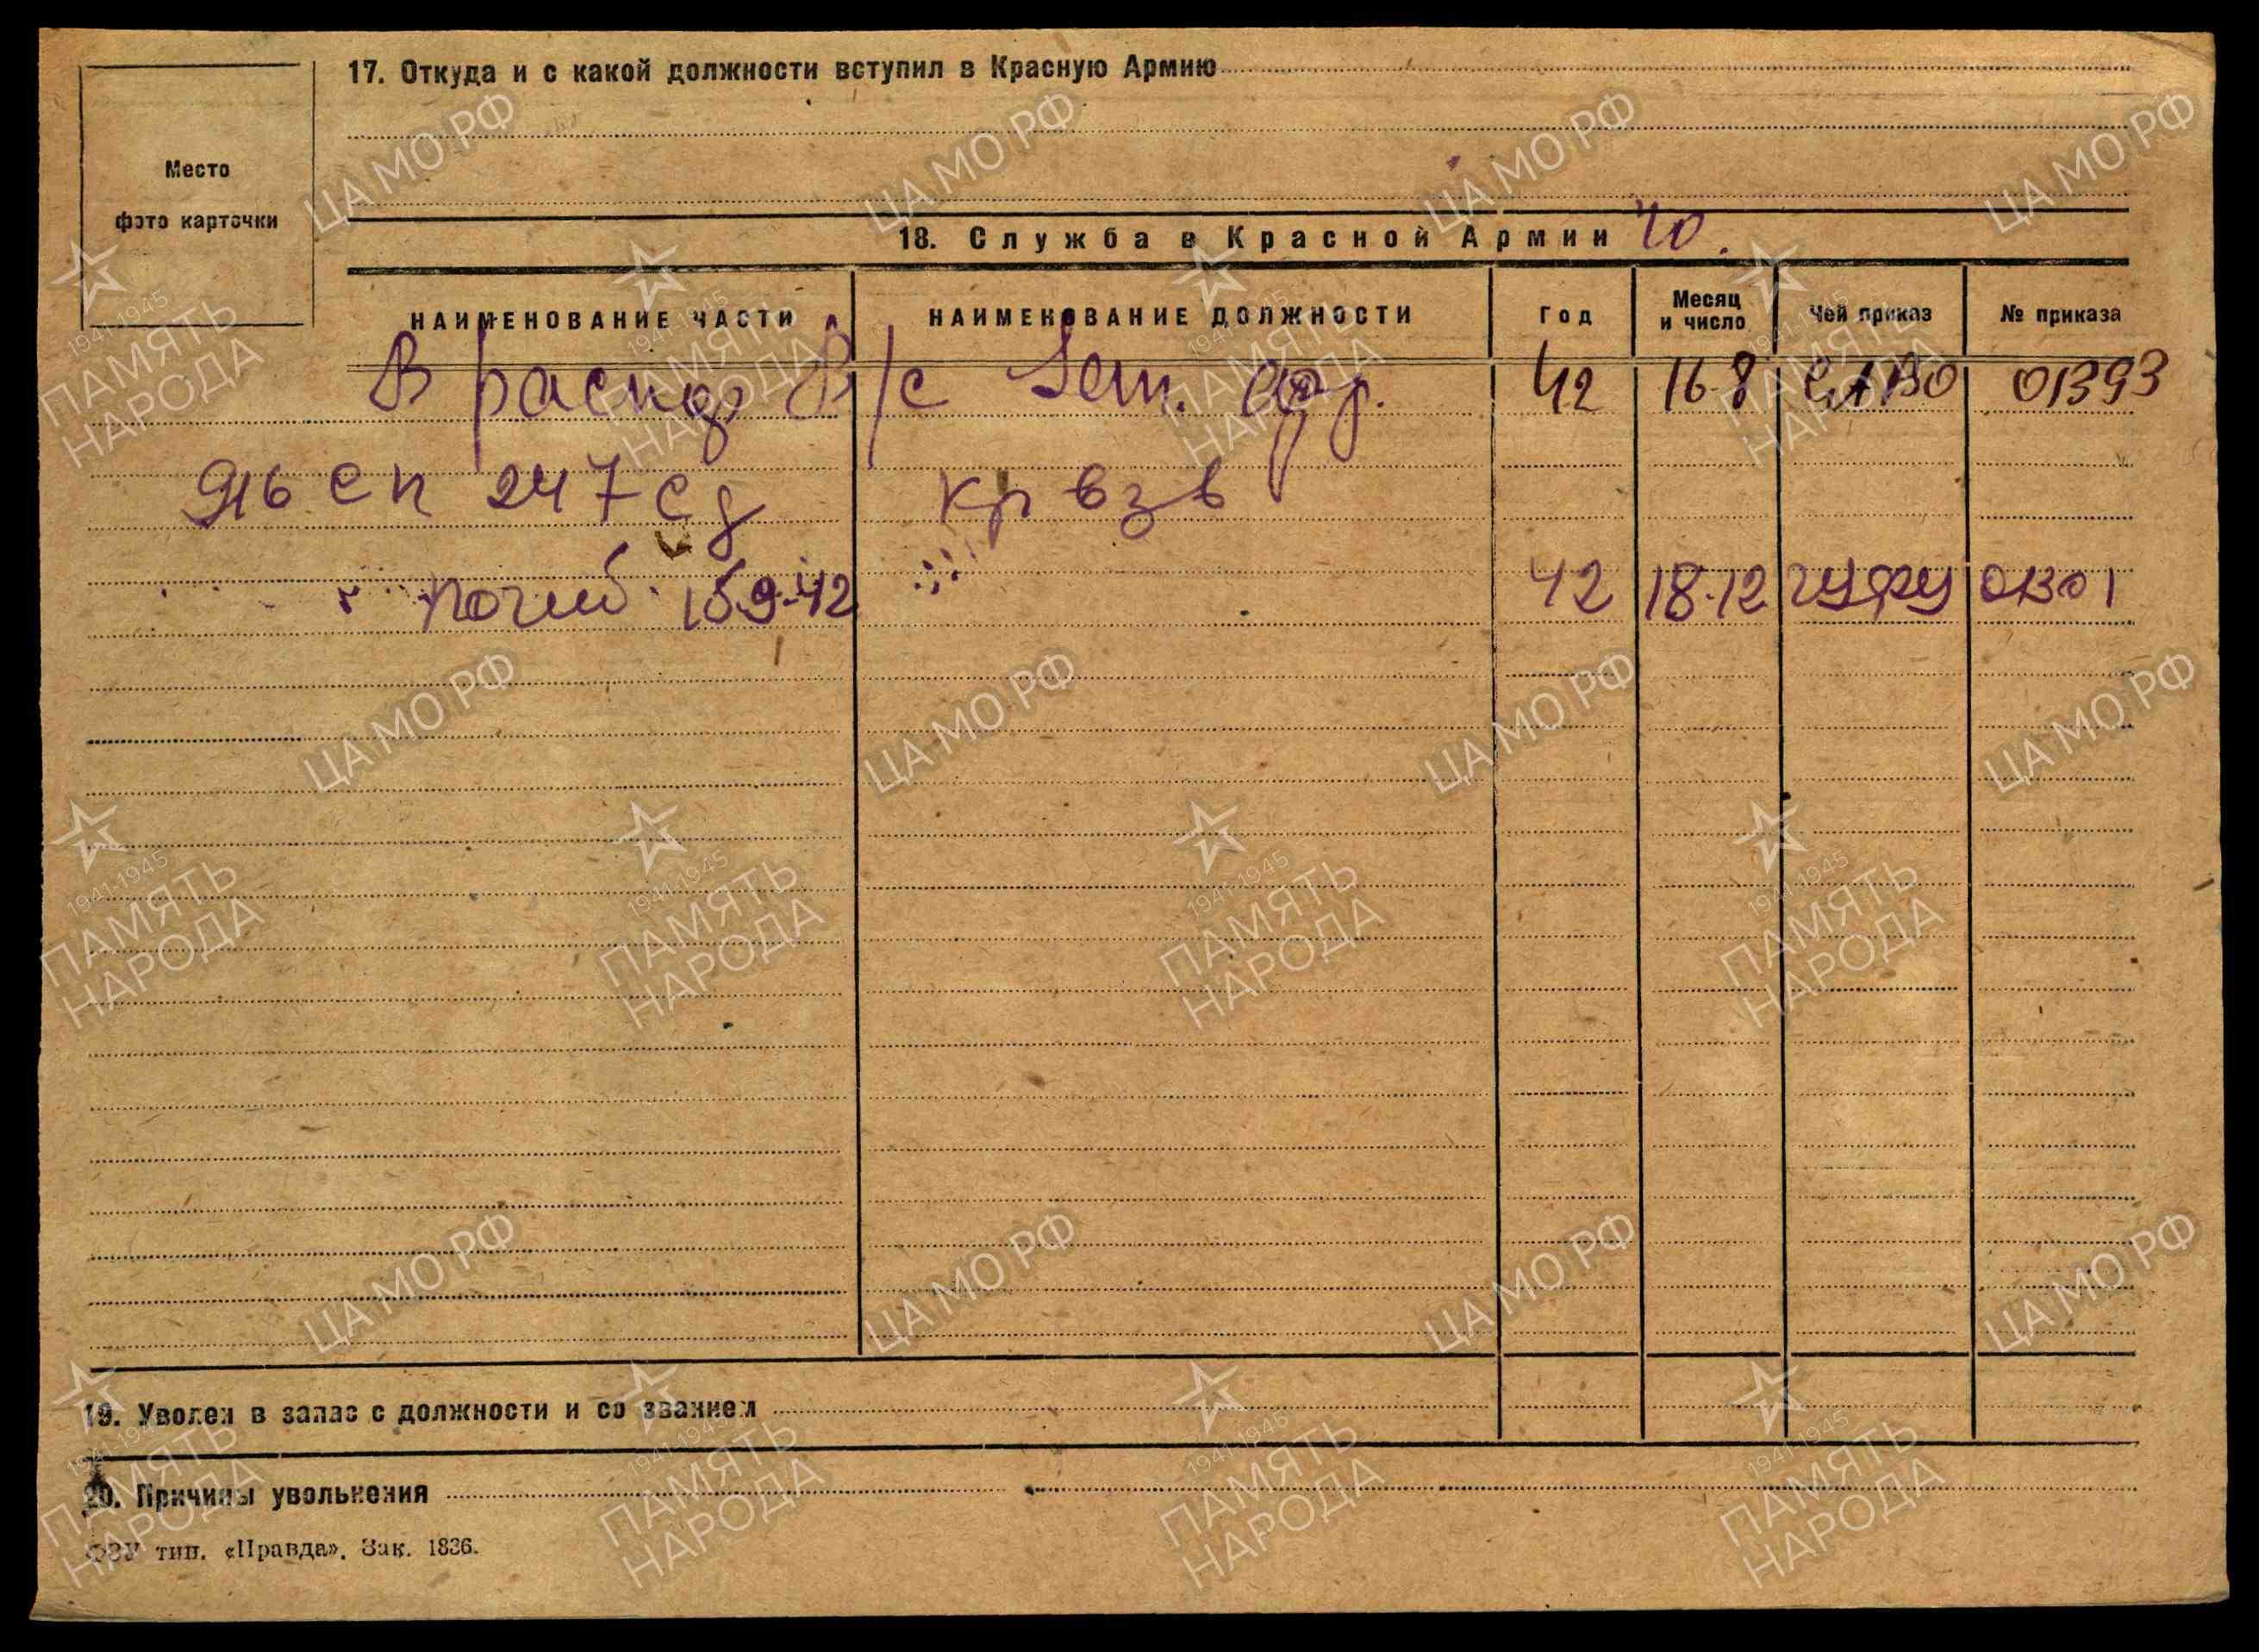 17. Откуда и с какой должности вступил в Красную Армию
Место
фото карточки
18. Служба в Красной Армии 40.
НАИМЕНОВАНИЕ ЧАСТИ НАИМЕНОВАНИЕ ДОЛЖНОСТИ Год Месяц и число Чей приказ № приказа
В распор В/с 42 16-8 САВО 01393
916 сп 247 сд к-р взв
погиб 15.9.42 42 18-12 ГУФУ 01301
19. Уволен в запас с должности и со званием
20. Причины увольнения
ФЗУ тип. «Правда». Зак. 1836.
ЦА МО РФ
1941-1945
ПАМЯТЬ
НАРОДА